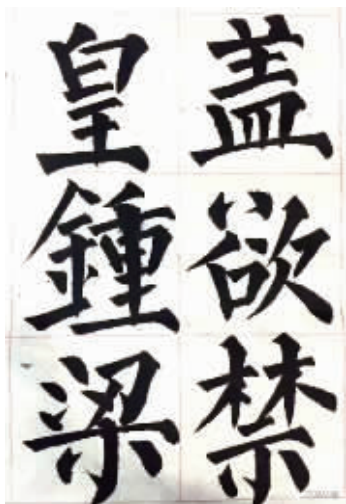 盖欲禁
皇鍾梁